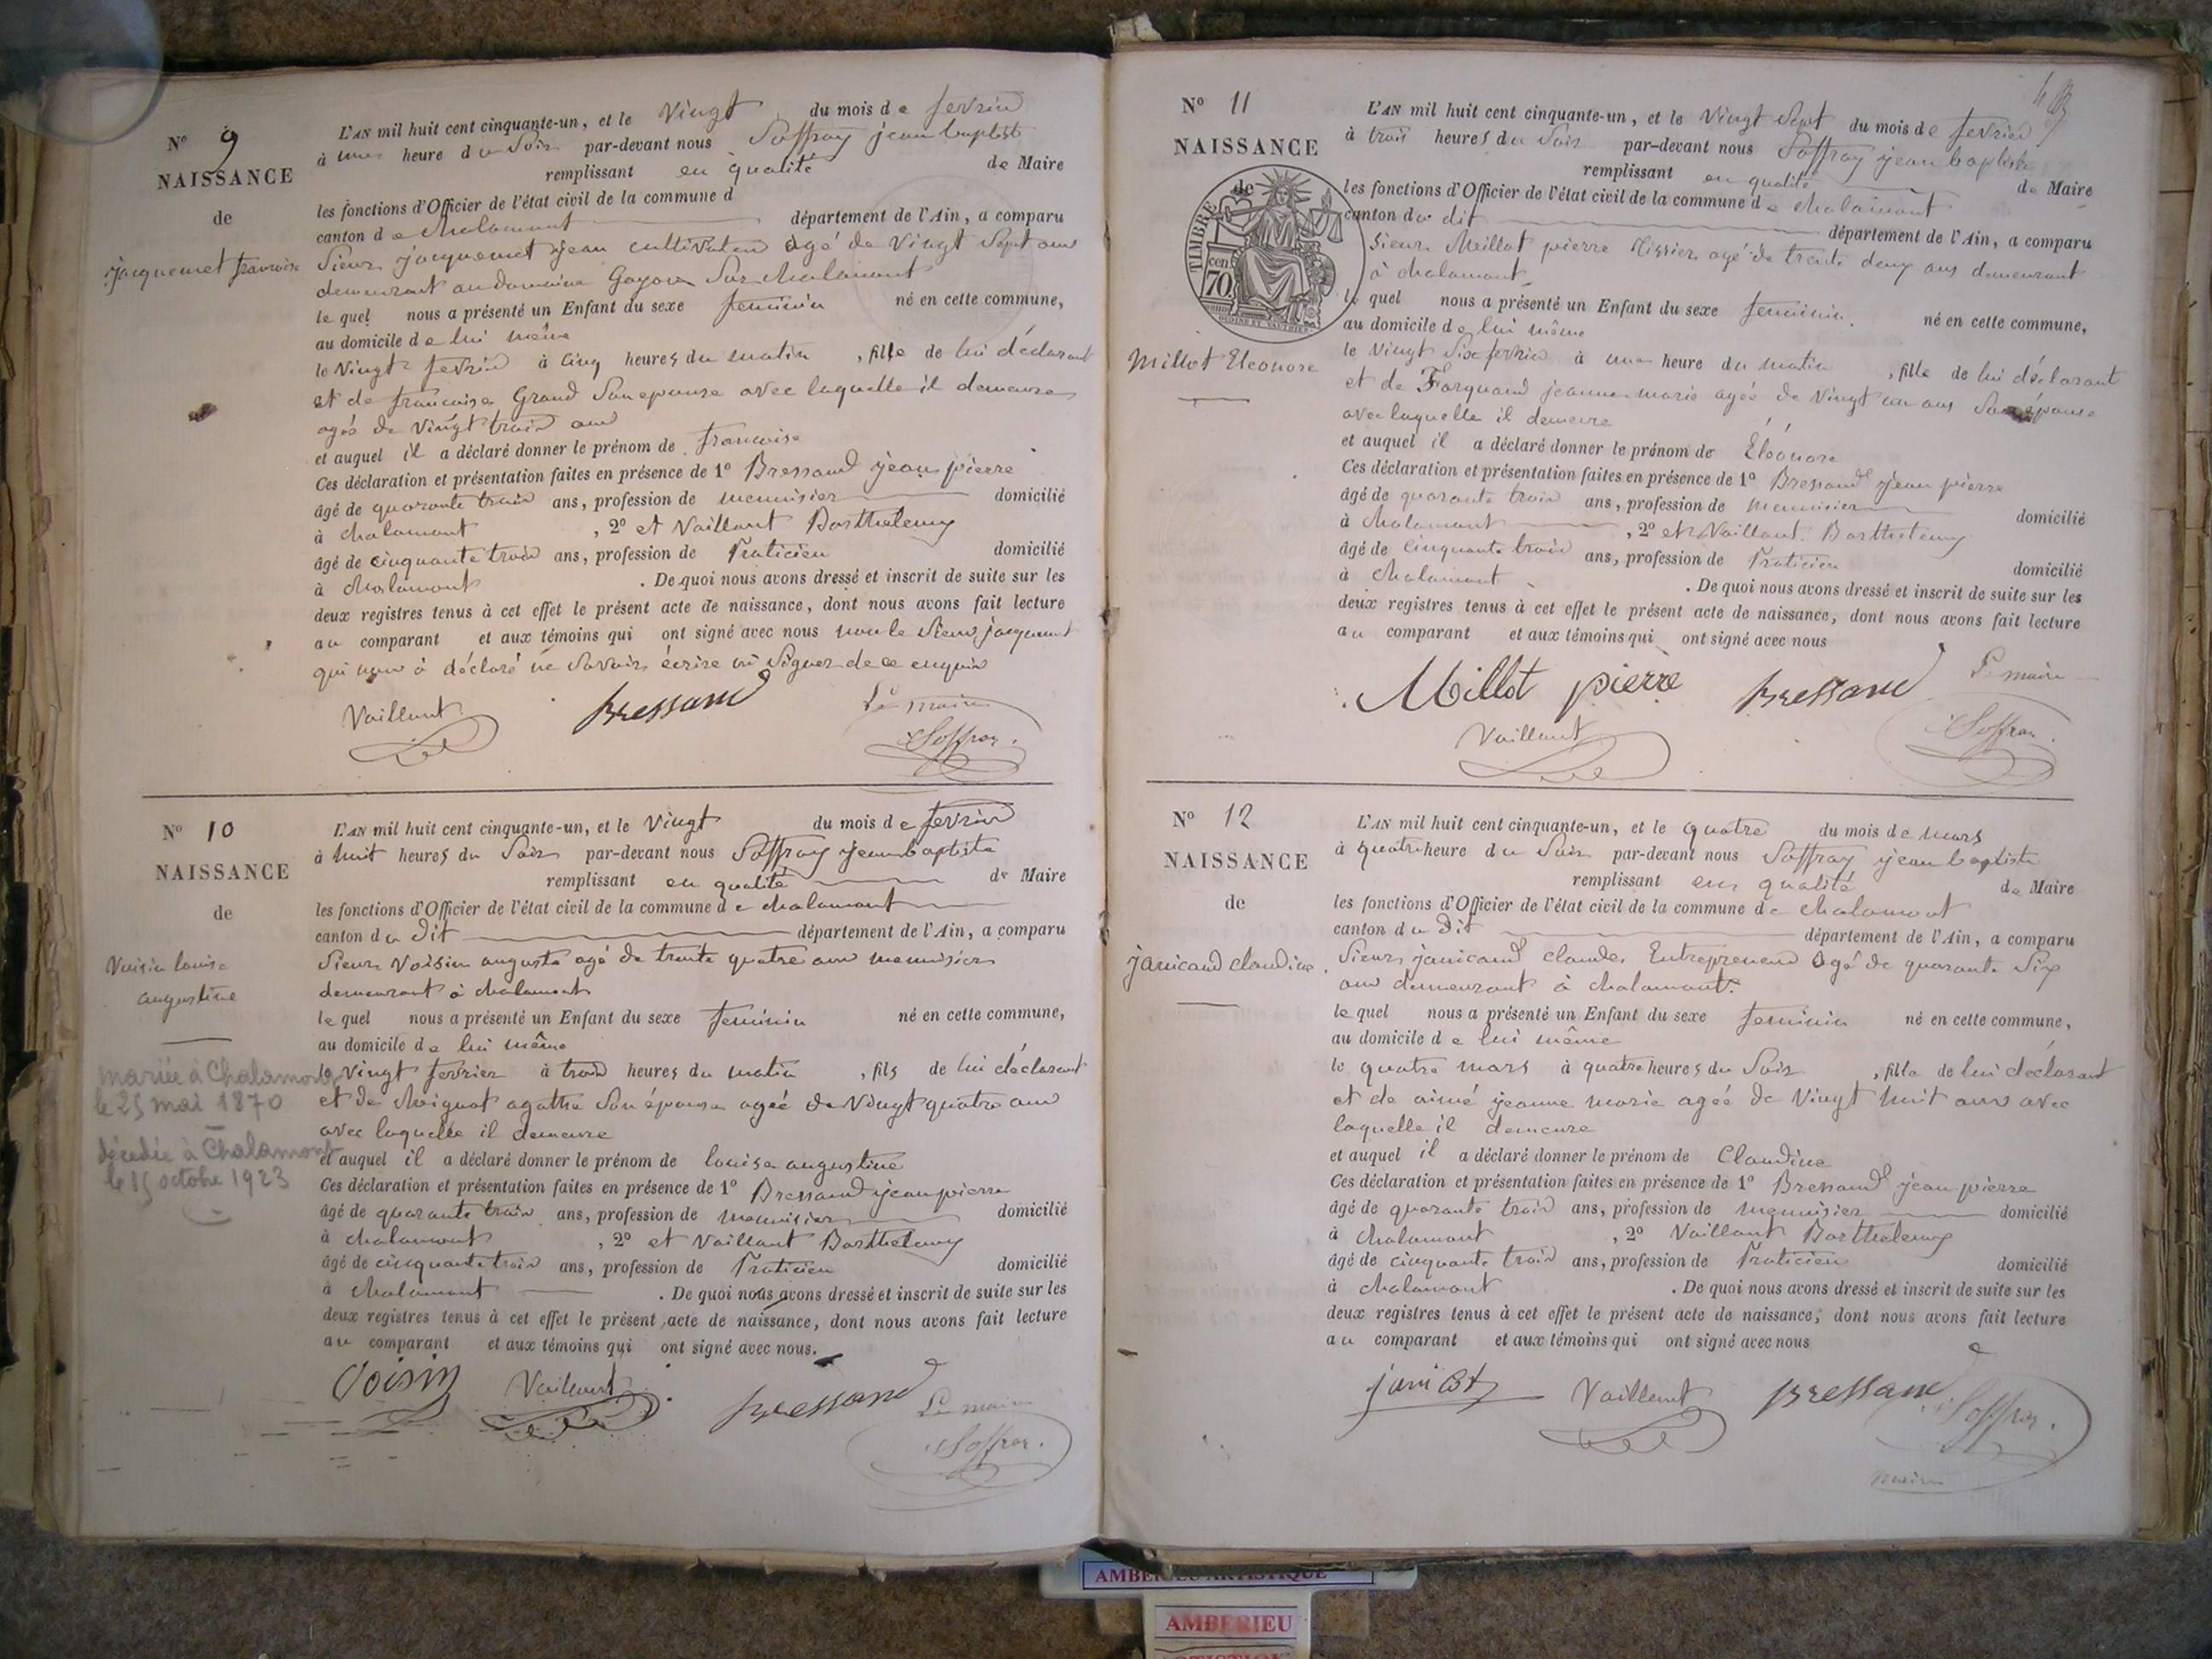 N° 9
NAISSANCE
de
jacquemet francoise
L'AN mil huit cent cinquante-un, et le Vingt du mois de fevrier
à une heure du Soir par-devant nous Soffray jean baptiste
remplissant en qualité de Maire
les fonctions d'Officier de l'état civil de la commune d
canton de chalamont département de l'Ain, a comparu
Sieur jacquemet jean cultivateur agé de Vingt Sept ans
demeurant au domaine Goyon Sur chalamont
le quel nous a présenté un Enfant du sexe feminin né en cette commune,
au domicile de lui même
le Vingt fevrier à cinq heures du matin , fille de lui déclarant
et de francoise Grand Son epouse avec laquelle il demeure
agée de Vingt trois ans
et auquel il a déclaré donner le prénom de francoise
Ces déclaration et présentation faites en présence de 1° Bressand jean pierre
âgé de quarante trois ans, profession de menuisier domicilié
à chalamont , 2° et Vaillant Barthelemy
âgé de cinquante trois ans, profession de Praticien domicilié
à chalamont . De quoi nous avons dressé et inscrit de suite sur les
deux registres tenus à cet effet le présent acte de naissance, dont nous avons fait lecture
au comparant et aux témoins qui ont signé avec nous non le Sieur jacquemet
qui nous à déclaré ne Savoir écrire ni Signer de ce enquis
Vaillant Bressand Le maire
Soffray
N° 10
NAISSANCE
de
Voisin louise
augustine
mariée à Chalamont
le 25 mai 1870
décédée à Chalamont
le 15 octobre 1923
L'AN mil huit cent cinquante-un, et le Vingt du mois de fevrier
à huit heures du Soir par-devant nous Soffray jean baptiste
remplissant en qualité de Maire
les fonctions d'Officier de l'état civil de la commune de chalamont
canton du dit département de l'Ain, a comparu
Sieur Voisin auguste agé de trente quatre ans menuisier
demeurant à chalamont
le quel nous a présenté un Enfant du sexe feminin né en cette commune,
au domicile de lui même
le Vingt fevrier à trois heures du matin , fils de lui déclarant
et de agathe Son épouse ageé de Vingt quatre ans
avec laquelle il demeure
et auquel il a déclaré donner le prénom de louise augustine
Ces déclaration et présentation faites en présence de 1° Bressand jean pierre
âgé de quarante trois ans, profession de menuisier domicilié
à chalamont , 2° et Vaillant Barthelemy
âgé de cinquante trois ans, profession de Praticien domicilié
à chalamont . De quoi nous avons dressé et inscrit de suite sur les
deux registres tenus à cet effet le présent acte de naissance, dont nous avons fait lecture
au comparant et aux témoins qui ont signé avec nous.
Voisin Vaillant Bressand Le maire
Soffray
N° 11
NAISSANCE
de
TIMBRE
70 cen
Millot Eleonore
L'AN mil huit cent cinquante-un, et le Vingt Sept du mois de fevrier
à trois heures du Soir par-devant nous Soffray jean baptiste
remplissant en qualité de Maire
les fonctions d'Officier de l'état civil de la commune de chalamont
canton du dit département de l'Ain, a comparu
Sieur Meillot pierre agé de trente deux ans demeurant
à chalamont
le quel nous a présenté un Enfant du sexe feminin. né en cette commune,
au domicile de lui même
le Vingt Six fevrier à une heure du matin , fille de lui déclarant
et de jeanne marie ageé de Vingt un ans Son épouse
avec laquelle il demeure
et auquel il a déclaré donner le prénom de Éléonore
Ces déclaration et présentation faites en présence de 1° Bressand jean pierre
âgé de quarante trois ans, profession de menuisier domicilié
à chalamont , 2° et Vaillant Barthelemy
âgé de cinquante trois ans, profession de Praticien domicilié
à chalamont . De quoi nous avons dressé et inscrit de suite sur les
deux registres tenus à cet effet le présent acte de naissance, dont nous avons fait lecture
au comparant et aux témoins qui ont signé avec nous
Millot pierre Bressand Le maire
Vaillant Soffray
N° 12
NAISSANCE
de
janicaud claudine
L'AN mil huit cent cinquante-un, et le quatre du mois de mars
à quatre heure du Soir par-devant nous Soffray jean baptiste
remplissant en qualité de Maire
les fonctions d'Officier de l'état civil de la commune de chalamont
canton du dit département de l'Ain, a comparu
Sieur janicaud claude Entrepreneur agé de quarante Six
ans demeurant à chalamont
le quel nous a présenté un Enfant du sexe feminin né en cette commune,
au domicile de lui même
le quatre mars à quatre heures du Soir , fille de lui déclarant
et de aimé jeanne marie ageé de Vingt huit ans avec
laquelle il demeure
et auquel il a déclaré donner le prénom de Claudine
Ces déclaration et présentation faites en présence de 1° Bressand jean pierre
âgé de quarante trois ans, profession de menuisier domicilié
à chalamont , 2° Vaillant Barthelemy
âgé de cinquante trois ans, profession de Praticien domicilié
à chalamont . De quoi nous avons dressé et inscrit de suite sur les
deux registres tenus à cet effet le présent acte de naissance, dont nous avons fait lecture
au comparant et aux témoins qui ont signé avec nous
Vaillant Bressand Soffray
maire
AMBERIEU ARTISTIQUE
AMBERIEU
ARTISTIQUE